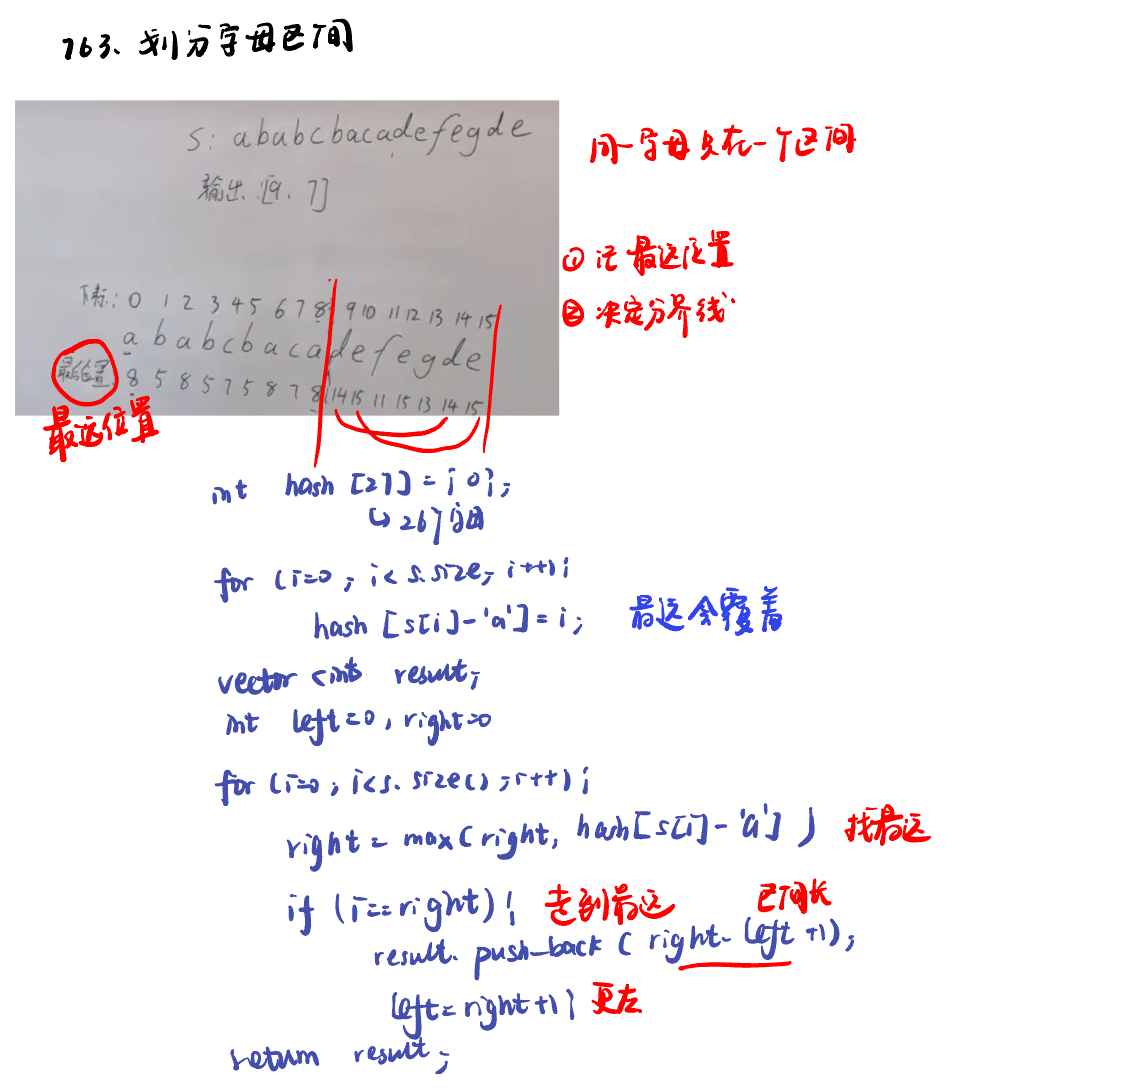 763、划分字母区间
s: ababcbacadefegde
输出:[9、7]
同一字母只在一个区间
① 记最远位置
② 决定分界线
下标: 0 1 2 3 4 5 6 7 8 9 10 11 12 13 14 15
a b a b c b a c a d e f e g d e
最远位置 8 5 8 5 7 5 8 7 8 14 15 11 15 13 14 15
最远位置
int hash [27] = {0};
↳ 26个字母
for (i=0; i< s.size; i++){
hash [s[i]-'a'] = i; 最远会覆盖
vector <int> result;
int left=0, right=0
for (i=0; i<s.size(); i++){
right = max(right, hash[s[i]-'a']) 找最远
if (i==right){ 走到最远 区间长
result.push_back (right-left+1);
left=right+1; 更左
return result;